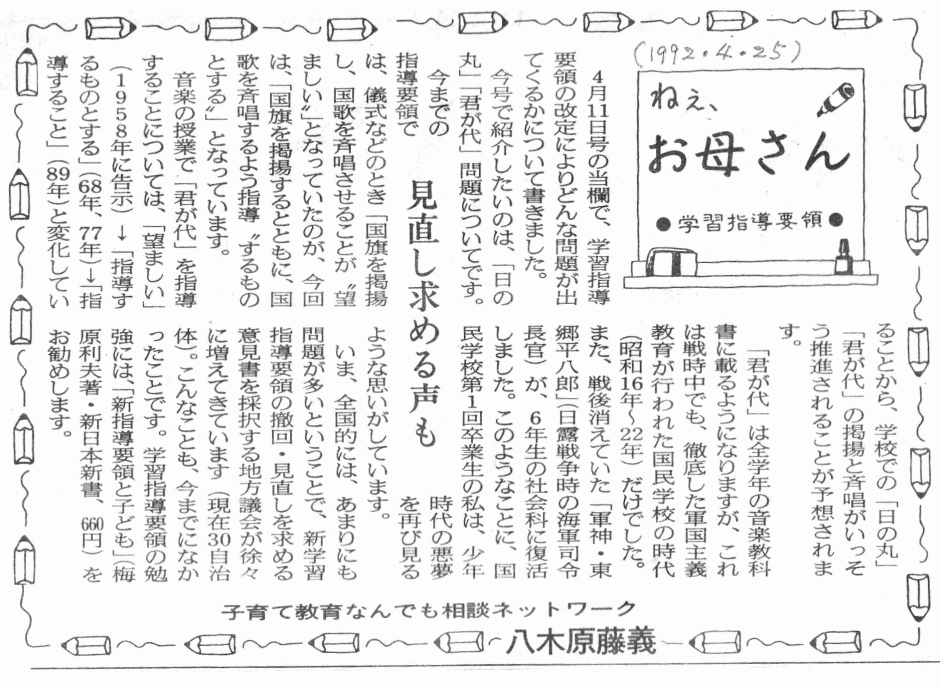 (1992.4.25)
ねぇ、
お母さん
●学習指導要領●
見直し求める声も
４月11日号の当欄で、学習指導
要領の改定によりどんな問題が出
てくるかについて書きました。
今号で紹介したいのは、「日の
丸」「君が代」問題についてです。
今までの
指導要領で
は、儀式などのとき「国旗を掲揚
し、国歌を斉唱させることが〝望
ましい〟となっていたのが、今回
は、「国旗を掲揚するとともに、国
歌を斉唱するよう指導〝するもの
とする〟」となっています。
音楽の授業で「君が代」を指導
することについては、「望ましい」
(1958年に告示)→「指導す
るものとする」(68年、77年)→「指
導すること」(89年)と変化してい
ることから、学校での「日の丸」
「君が代」の掲揚と斉唱がいっそ
う推進されることが予想されま
す。
「君が代」は全学年の音楽教科
書に載るようになりますが、これ
は戦時中でも、徹底した軍国主義
教育が行われた国民学校の時代
(昭和16年〜22年)だけでした。
また、戦後消えていた「軍神・東
郷平八郎」(日露戦争時の海軍司令
長官)が、６年生の社会科に復活
しました。このようなことに、国
民学校第１回卒業生の私は、少年
時代の悪夢
を再び見る
ような思いがしています。
いま、全国的には、あまりにも
問題が多いということで、新学習
指導要領の撤回・見直しを求める
意見書を採択する地方議会が徐々
に増えてきています(現在30自治
体)。こんなことも、今までになか
ったことです。学習指導要領の勉
強には、「新指導要領と子ども」(梅
原利夫著・新日本新書、660円)を
お勧めします。
子育て教育なんでも相談ネットワーク
八木原藤義